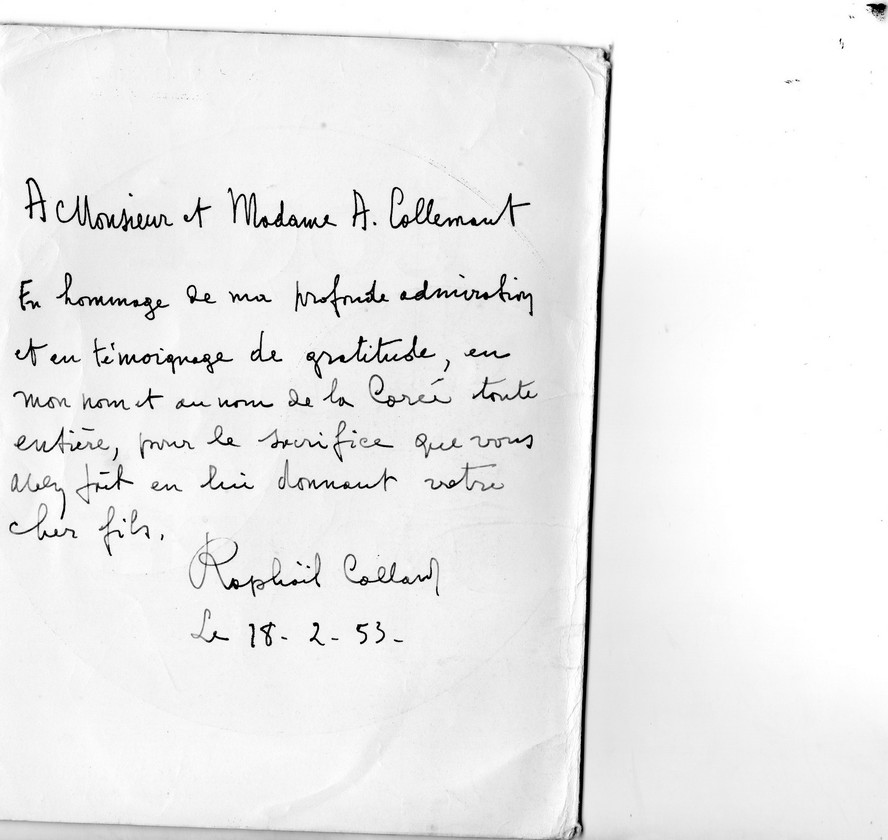 A Monsieur et Madame A. Collemant
En hommage de ma profonde admiration
et en témoignage de gratitude, en
mon nom et au nom de la Corée toute
entière, pour le sacrifice que vous
avez fait en lui donnant votre
cher fils.
Raphaël Collard
Le 18-2-53-